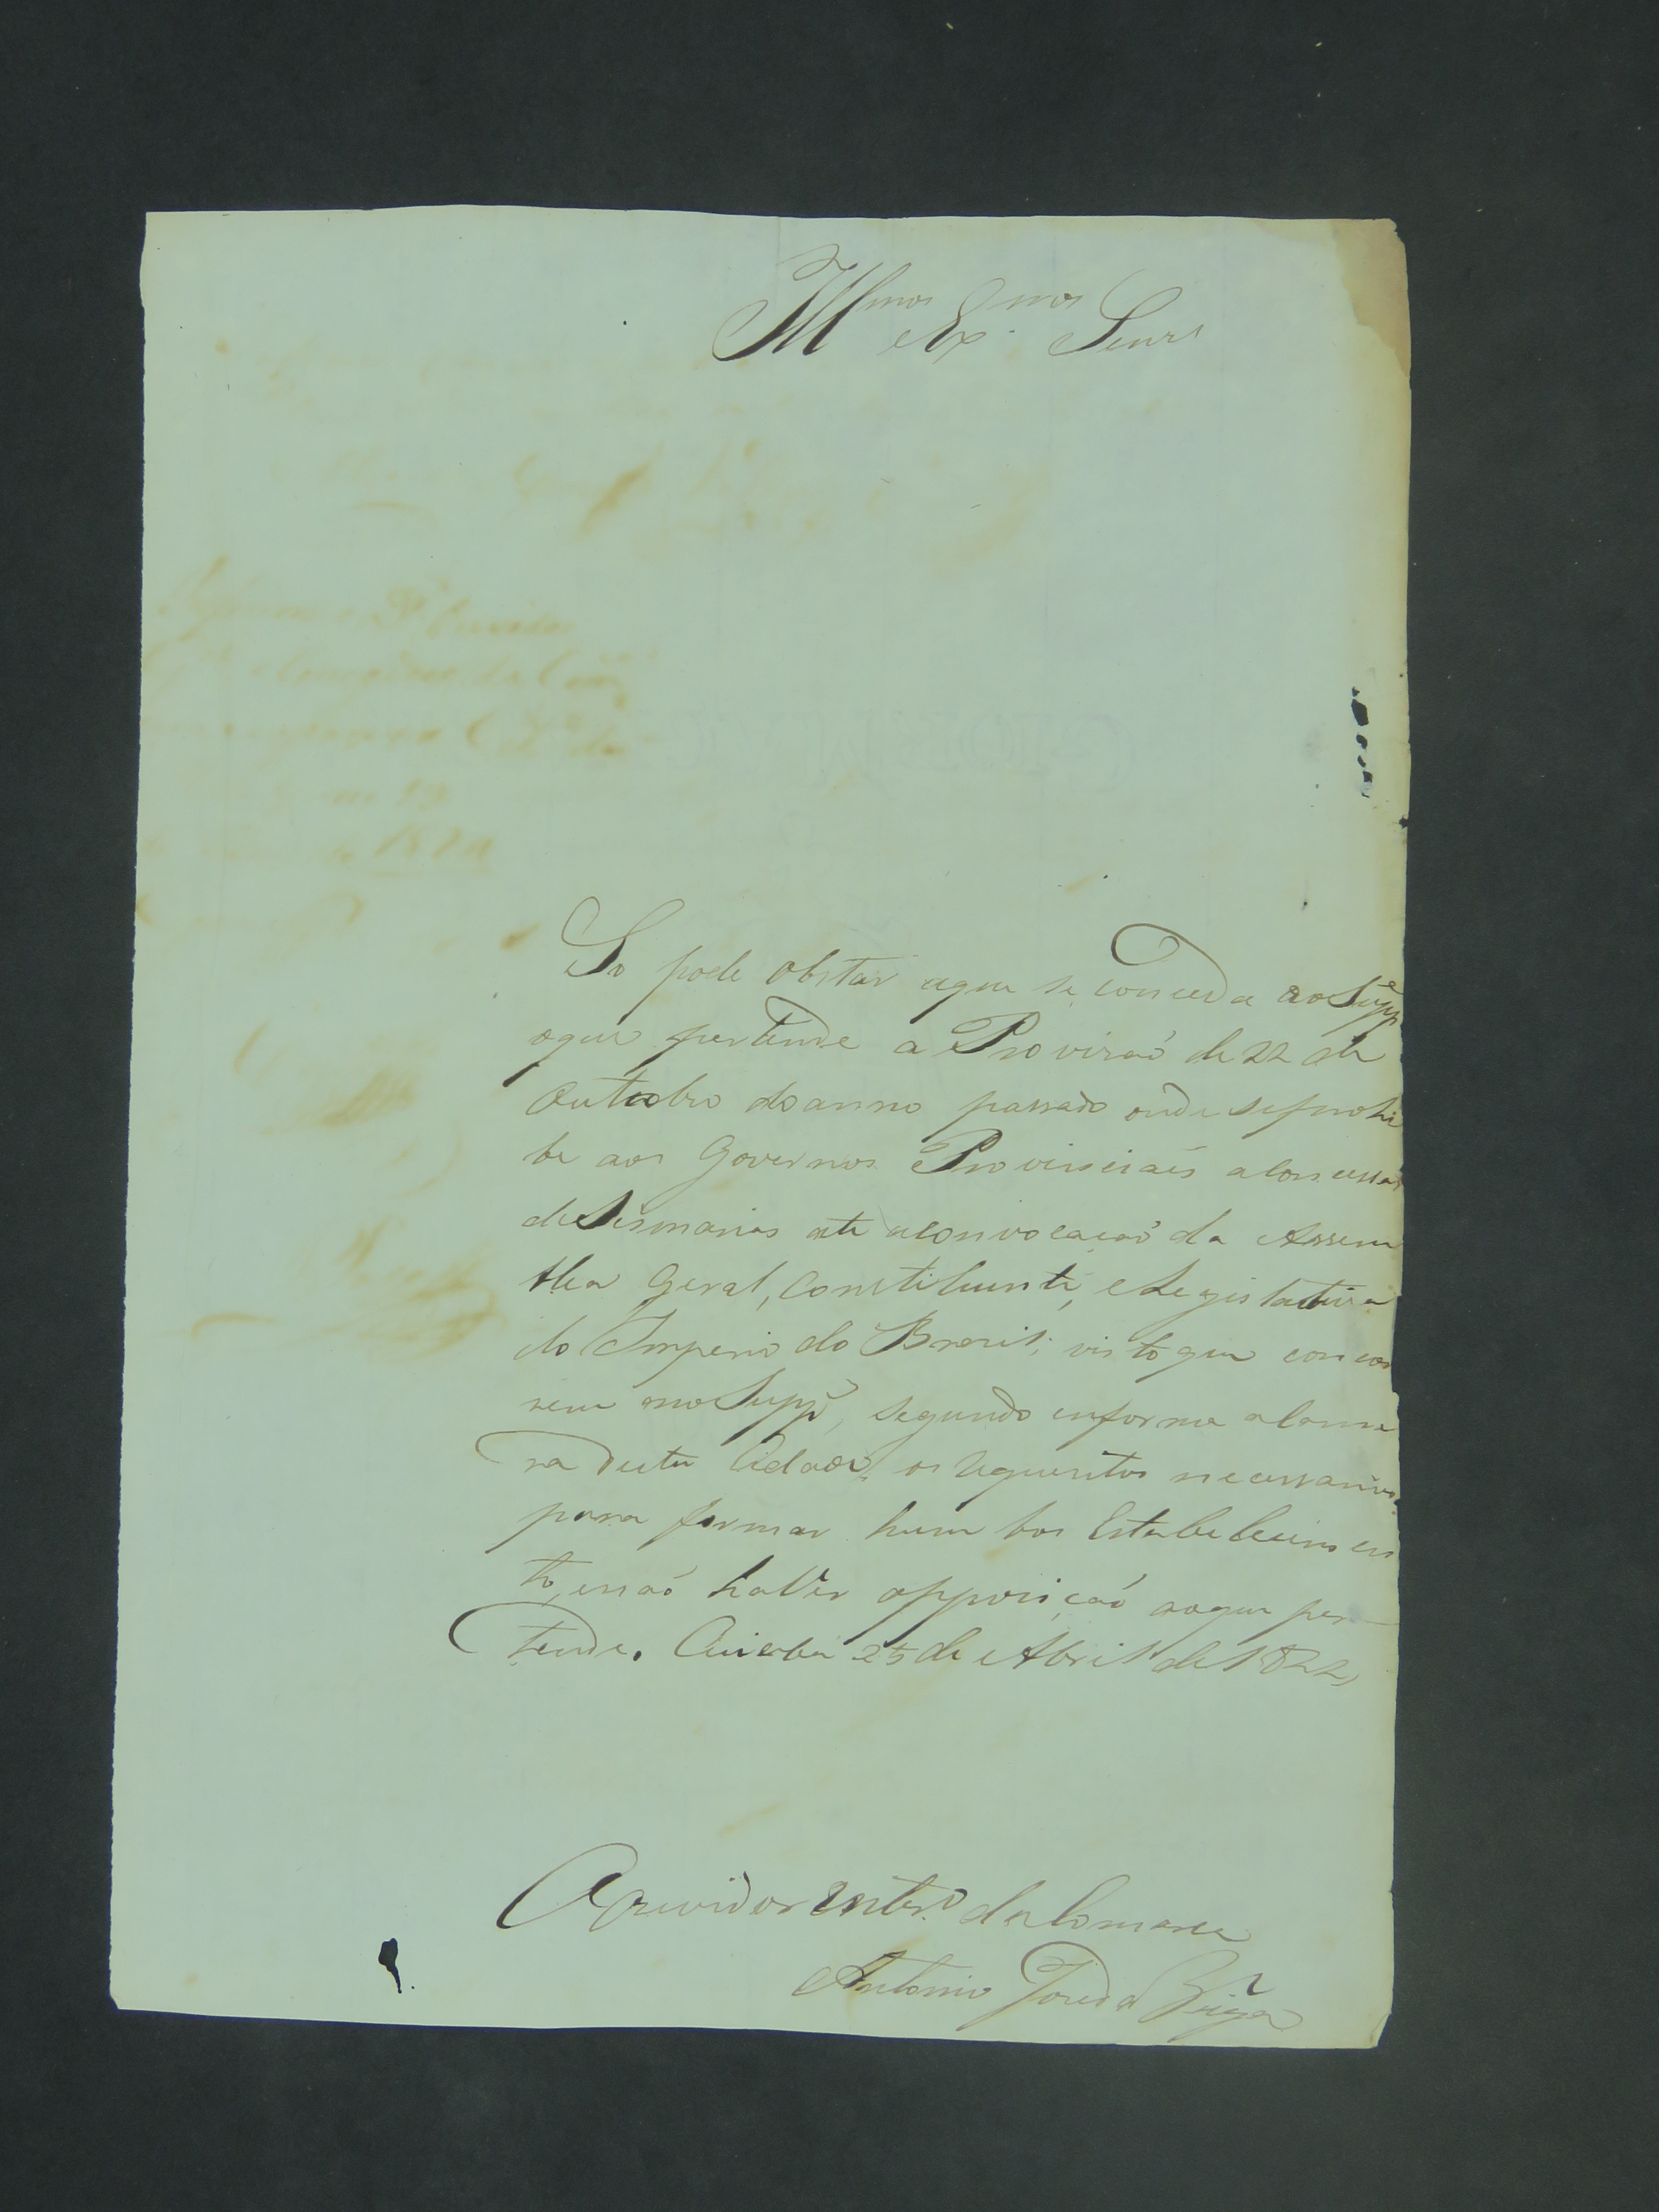 Illmos Exmos Senrs
So pode obstar aque se conceda ao Suppe
oque pertende a Provizaó de 22 de
Outubro do anno passado onde se prohi
be aos Governos Provinciais a Concessaó
de Sismarias ate a Convocaçaó da Assem
blea Geral, Constituinte, e Legislativa
do Imperio do Brazil; visto que concor
rem no Suppe, segundo informa a Cama
ra desta Cidade, os requezitos necessarios
para formar hum bom Estabelecimen
to, e naó haver oppoziçaó aoque per
tende. Cuiaba 25 de Abril de 1822,
O Ouvidor Intero da Comarca
Antonio Joze da Veiga